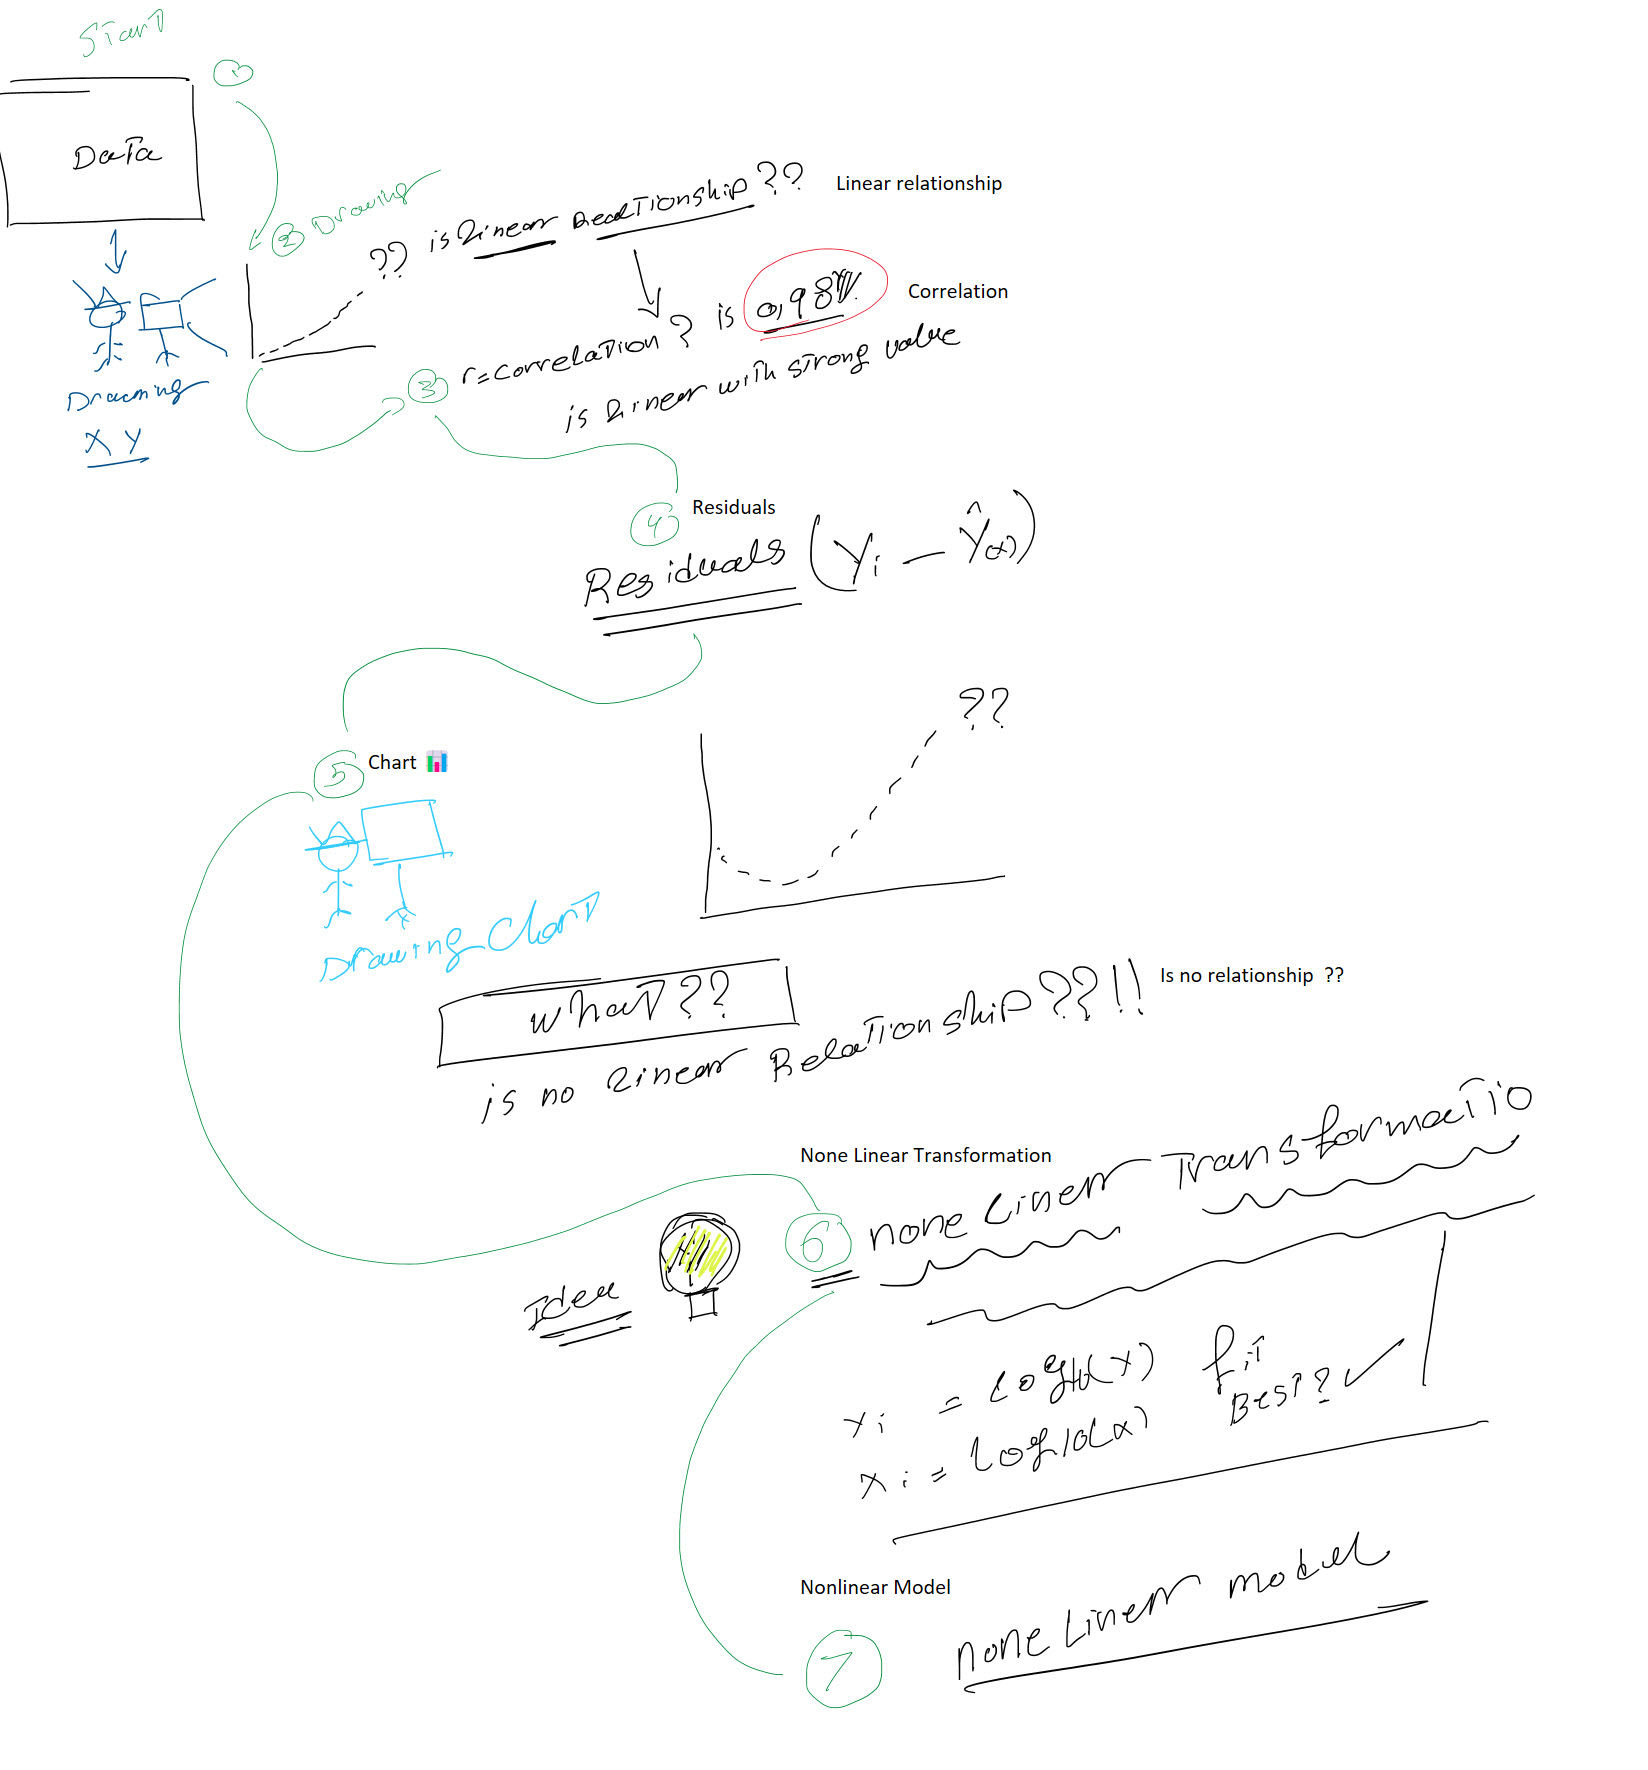 Start
1
Data
Drawing
X Y
2 Drawing
??
is Linear Relationship ??
Linear relationship
r=correlation? is 0,98
Correlation
is Linear with strong value
3
4
Residuals
Residuals (Yi — Ŷ(x))
5
Chart
Drawing Chart
??
What??
is no Linear Relationship??!!
Is no relationship ??
None Linear Transformation
6
none Linerr Transformatio
Idea
= Log10(x) fit
Best?
xi = Log10(x)
Nonlinear Model
7
none Linerr model